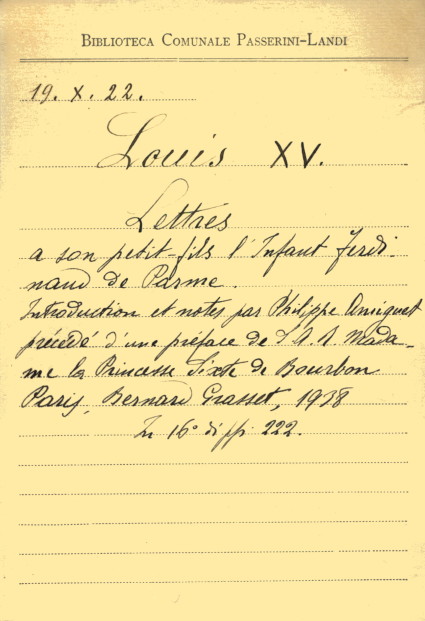 BIBLIOTECA COMUNALE PASSERINI-LANDI
19. X. 22.
Louis XV.
Lettres
a son petit-fils l'Infant Ferdi-
nand de Parme.
Introduction et notes par Philippe Amiguet
précédé d'une préface de S. A. R. Mada-
me la Princesse Sixte de Bourbon
Paris, Bernard Grasset, 1938
In 16° di pp. 222.